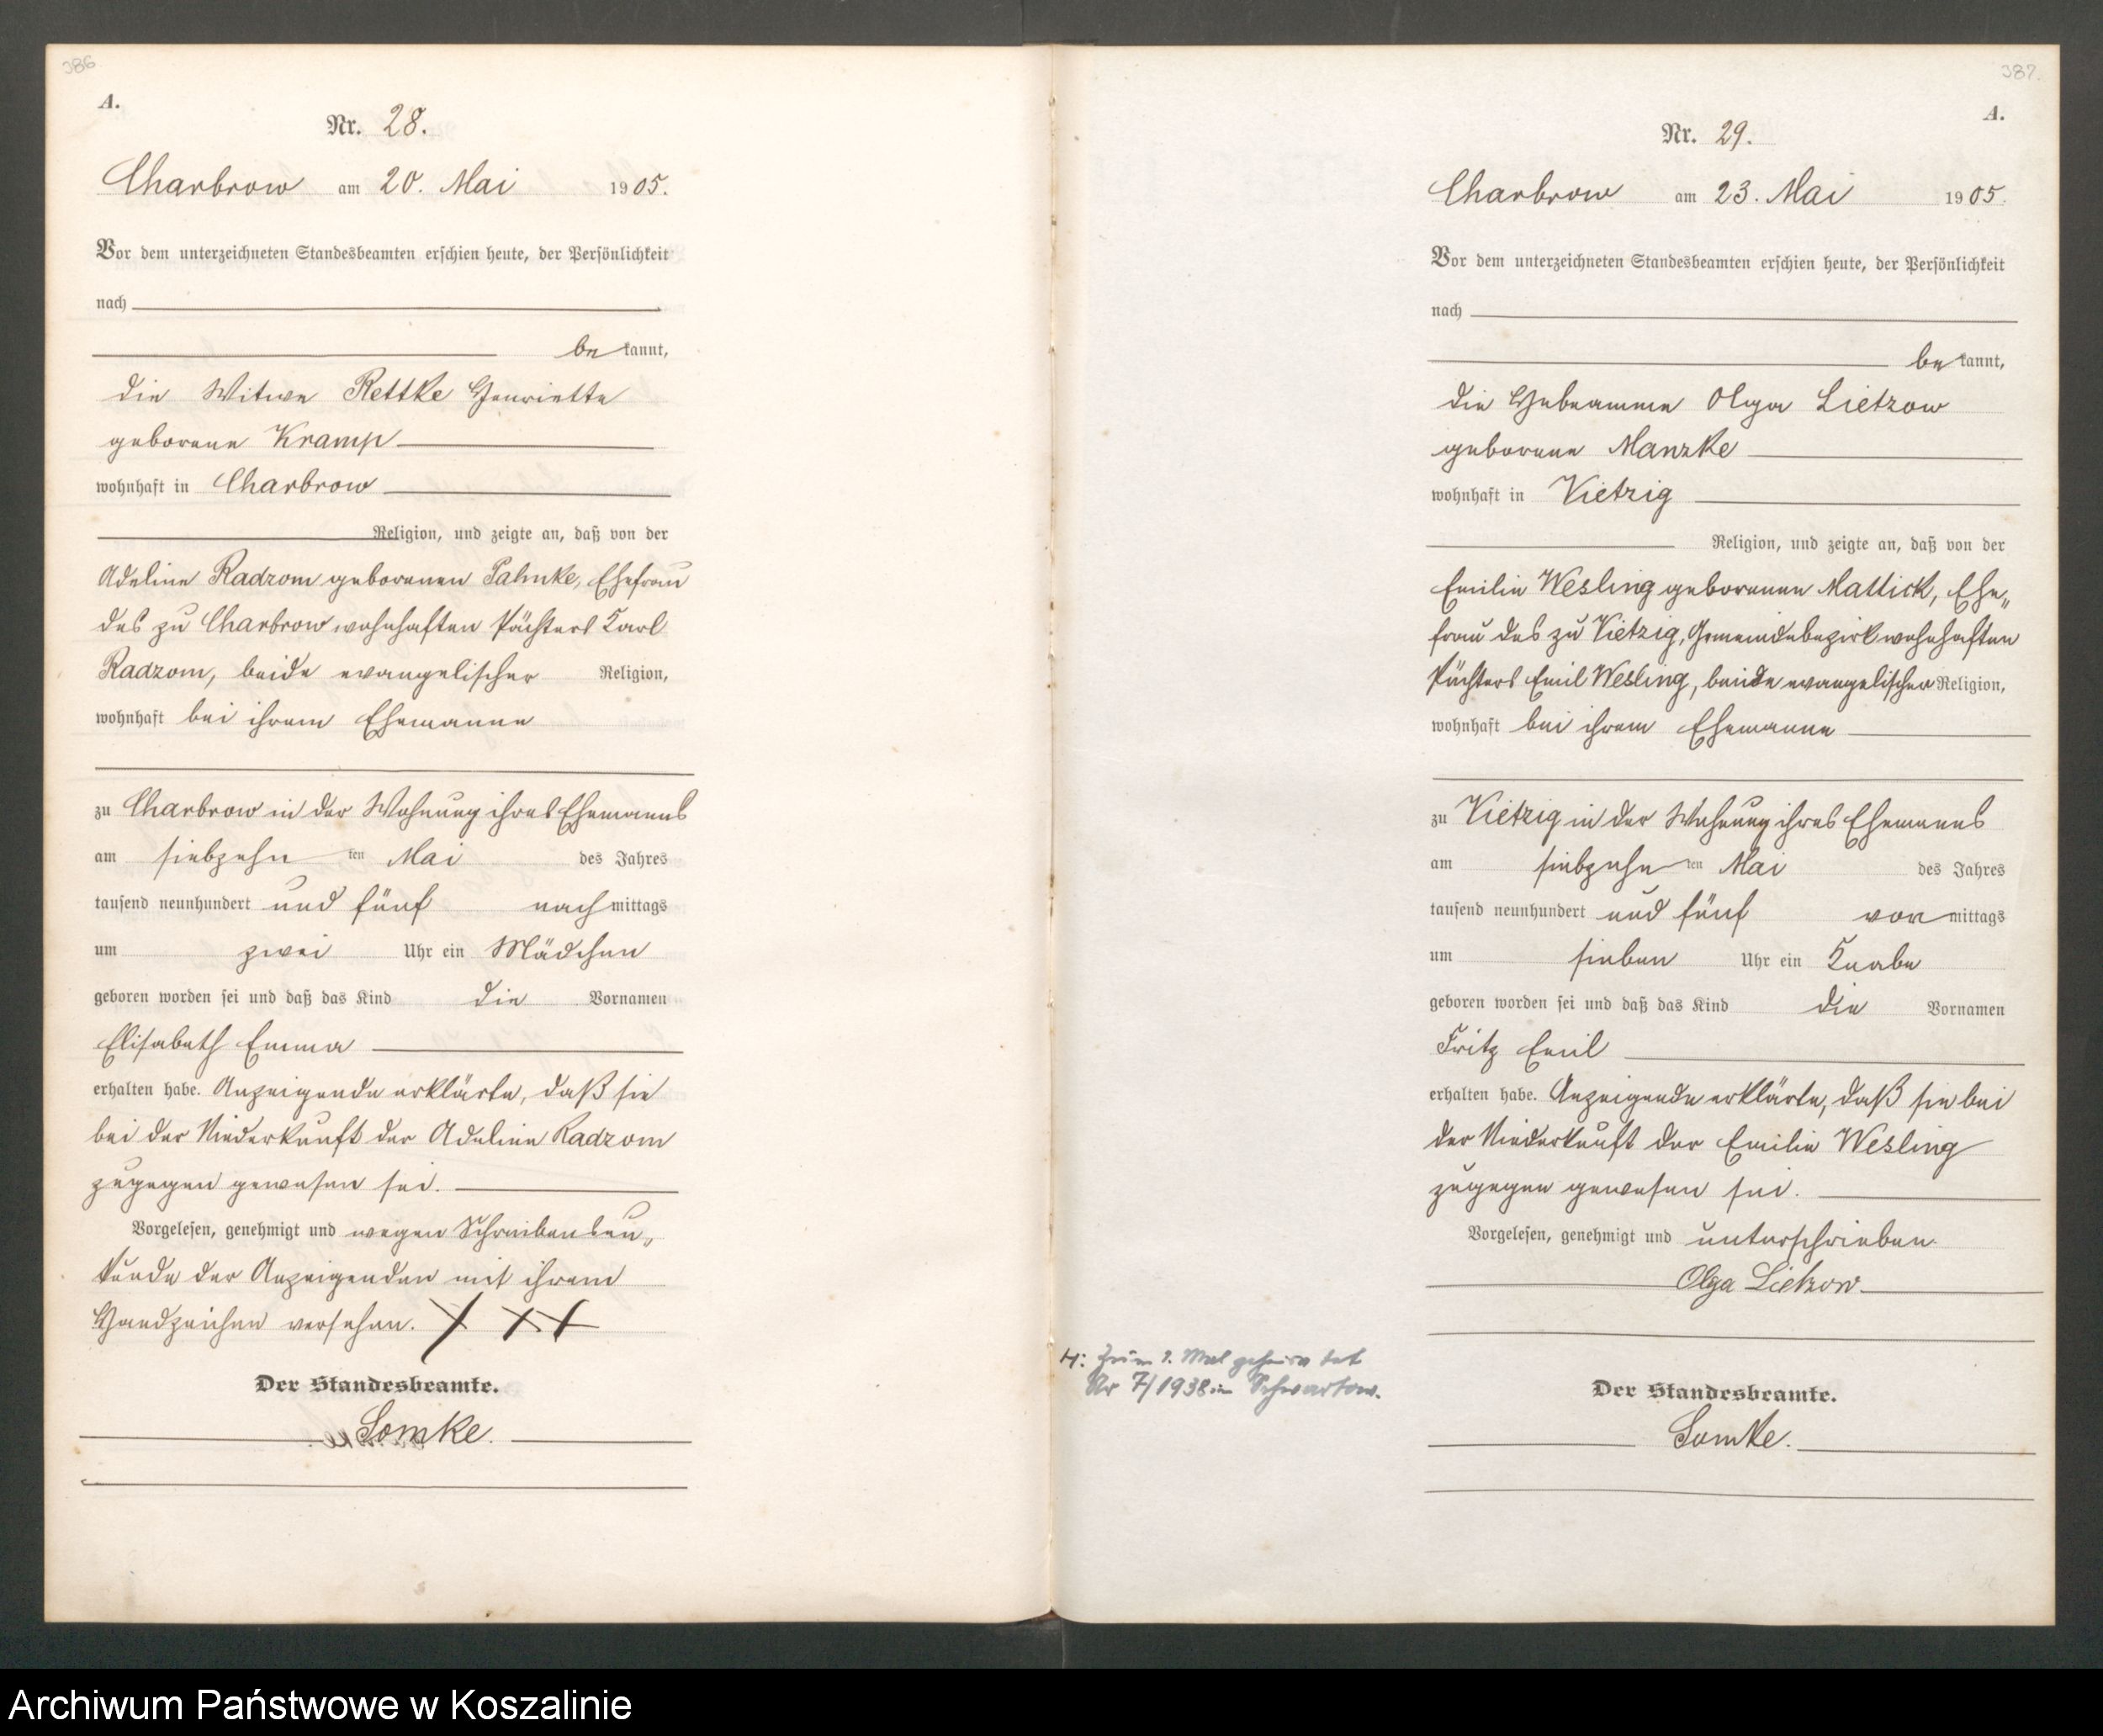 386
A.
Nr. 28.
Charbrow am 20. Mai 1905.
Vor dem unterzeichneten Standesbeamten erschien heute, der Persönlichkeit
nach
bekannt,
die Witwe Rettke Henriette
geborene Kramp
wohnhaft in Charbrow
Religion, und zeigte an, daß von der
Adeline Radzom geborenen Pahnke, Ehefrau
des zu Charbrow wohnhaften Pächters Karl
Radzom, beide evangelischer Religion,
wohnhaft bei ihrem Ehemanne
zu Charbrow in der Wohnung ihres Ehemanns
am siebzehn ten Mai des Jahres
tausend neunhundert und fünf nachmittags
um zwei Uhr ein Mädchen
geboren worden sei und daß das Kind die Vornamen
Elisabeth Emma
erhalten habe. Anzeigende erklärte, daß sie
bei der Niederkunft der Adeline Radzom
zugegen gewesen sei.
Vorgelesen, genehmigt und wegen Schreibensun„
kunde der Anzeigenden mit ihrem
Handzeichen versehen. XXX
Der Standesbeamte.
Somke.
387.
A.
Nr. 29.
Charbrow am 23. Mai 1905.
Vor dem unterzeichneten Standesbeamten erschien heute, der Persönlichkeit
nach
bekannt,
die Hebeamme Olga Lietzow
geborene Manzke
wohnhaft in Vietzig
Religion, und zeigte an, daß von der
Emilie Wesling geborenen Mattick, Ehe„
frau des zu Vietzig, Gemeindebezirk wohnhaften
Pächters Emil Wesling, beide evangelischer Religion,
wohnhaft bei ihrem Ehemanne
zu Vietzig in der Wohnung ihres Ehemanns
am siebzehn ten Mai des Jahres
tausend neunhundert und fünf vormittags
um sieben Uhr ein Knabe
geboren worden sei und daß das Kind die Vornamen
Fritz Emil
erhalten habe. Anzeigende erklärte, daß sie bei
der Niederkunft der Emilie Wesling
zugegen gewesen sei.
Vorgelesen, genehmigt und unterschrieben.
Olga Lietzow.
H: Zum 1. Mal geheiratet
Nr 7/1938 in Schwartow.
Der Standesbeamte.
Somke.
Archiwum Państwowe w Koszalinie